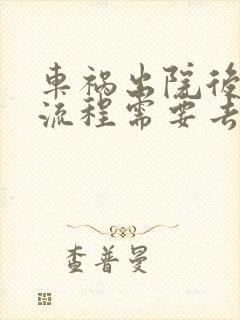 車祸出院後
流程需要去
查普曼